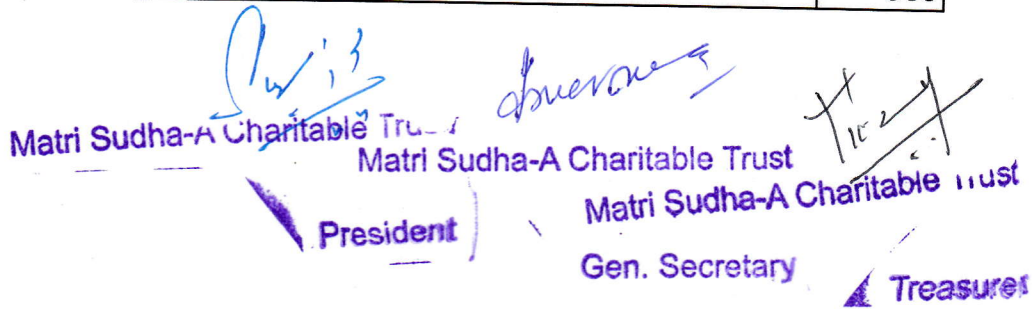 Matri Sudha-A Charitable
President
Matri Sudha-A Charitable Trust
Gen. Secretary
Matri Sudha-A Charitable Trust
Treasurer